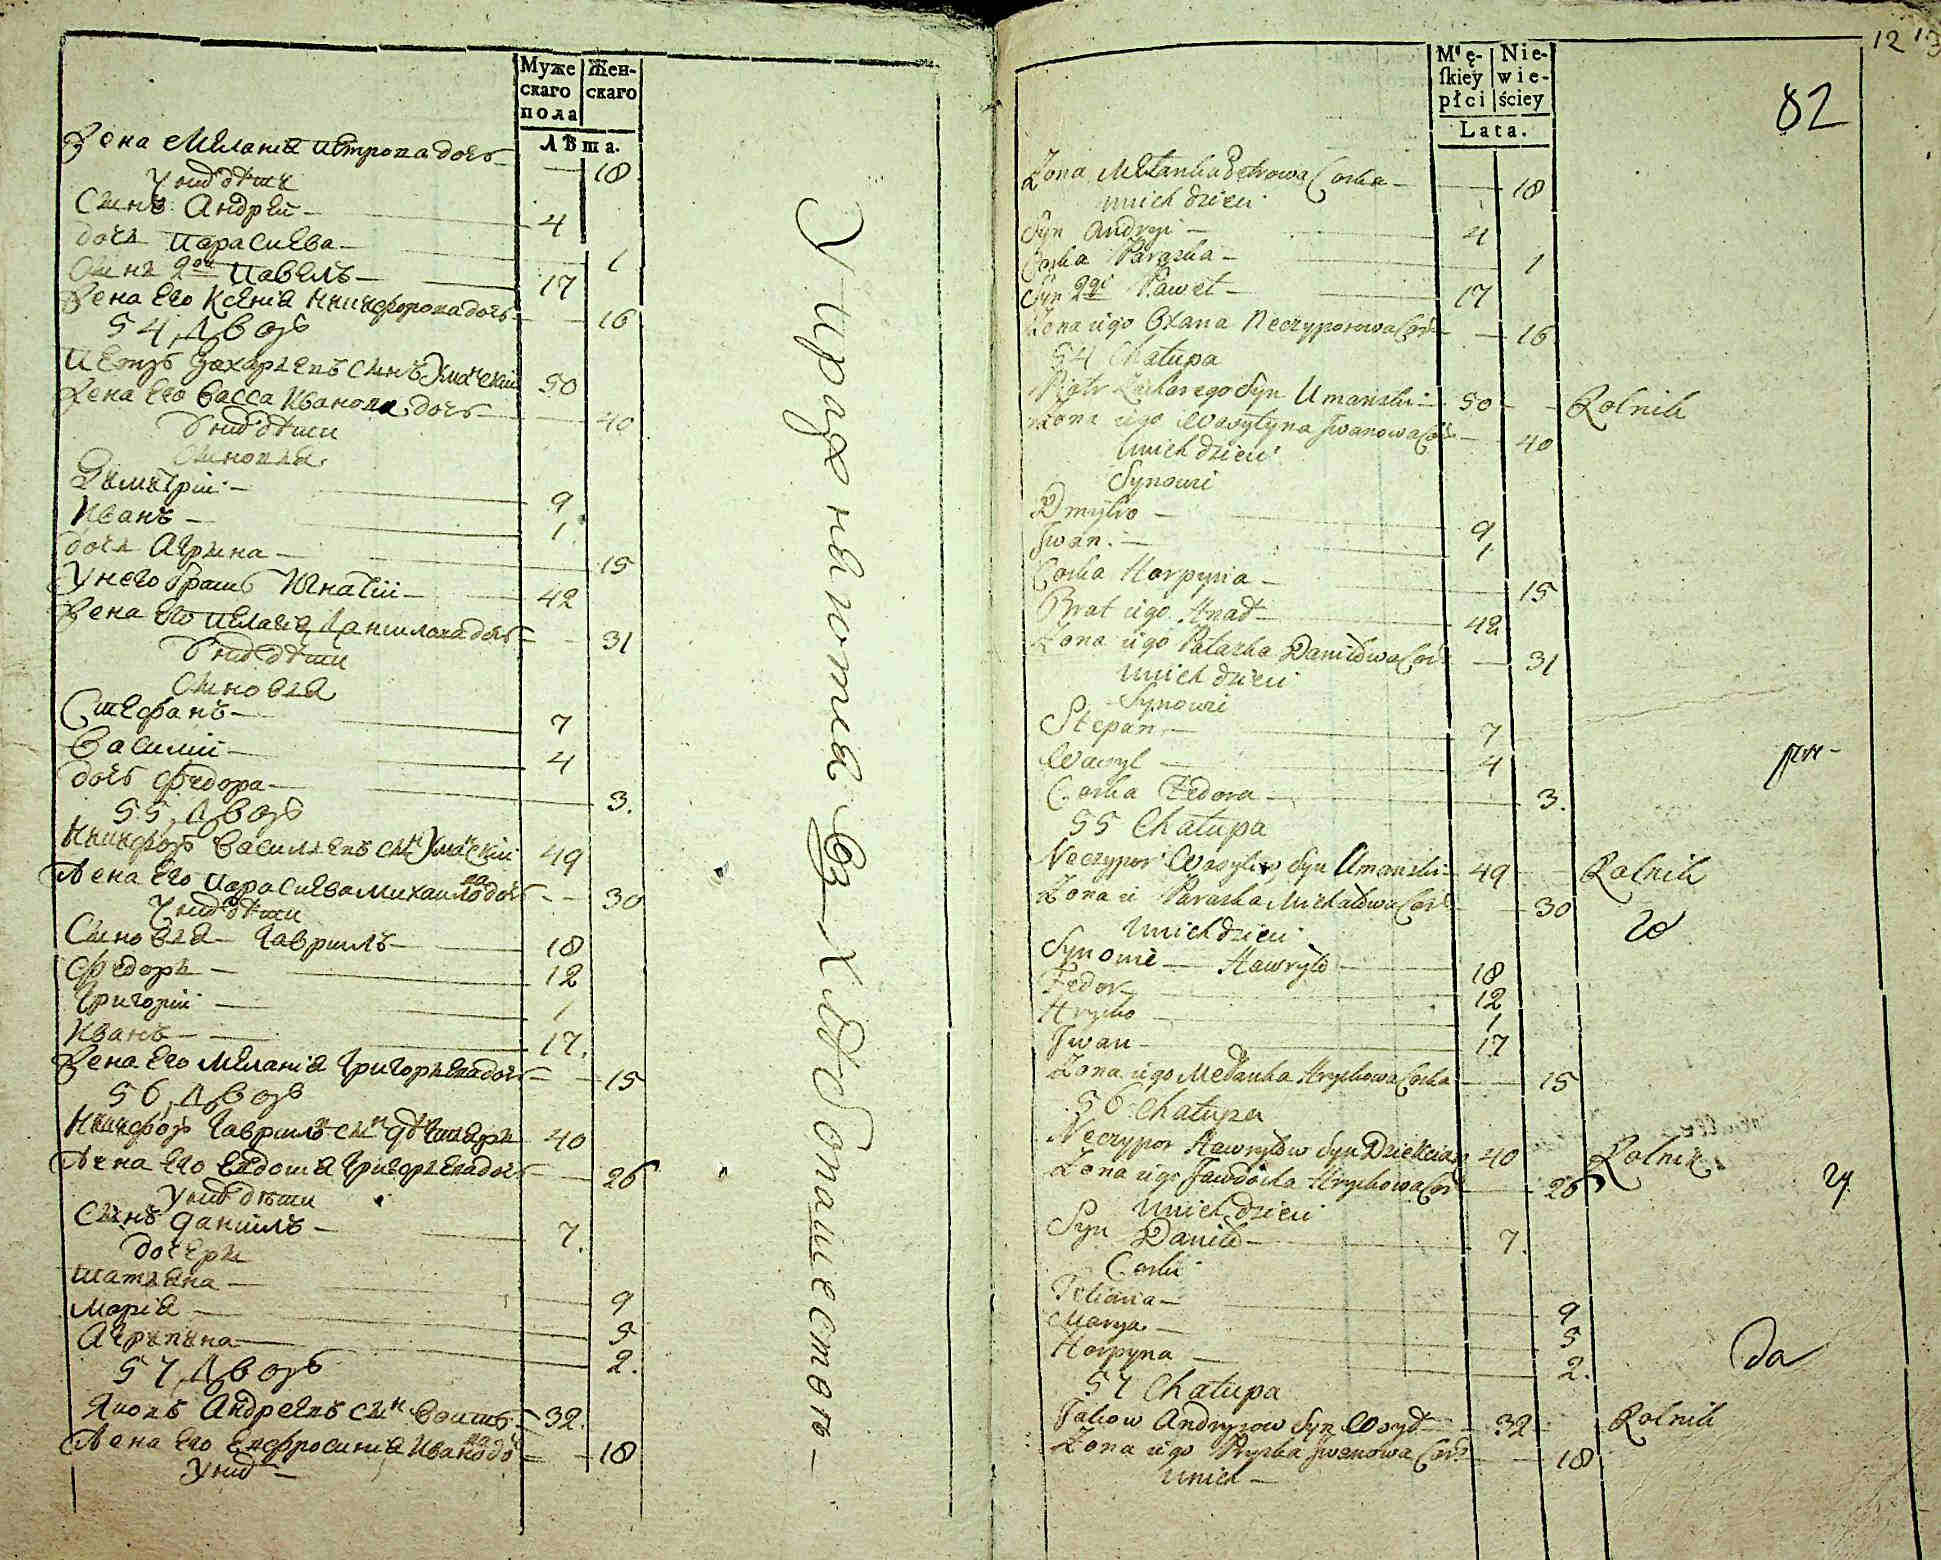 Муже
скаго
пола
Жен-
скаго
Лѣта.
Жена Меланія Петрова дочь 18
У нихъ дѣти
Сынъ Андрей 4
дочь Парасцева 1
Сынъ 2ой Павелъ 17
Жена Его Ксенія Никифорова дочь 16
54 Дворъ
Петръ Захаріевъ сынъ Уманскій 50
Жена Его Васса Иванова дочь 40
У нихъ дѣти
Сыновья
Димитрій 9
Иванъ 1
дочь Агрипина 15
У него братъ Игнатій 42
Жена Его Пелагія Данилова дочь 31
У нихъ дѣти
Сыновья
Стефанъ 7
Василій 4
дочь Федора 3.
55 Дворъ
Никифоръ Васильевъ сынъ Уманскій 49
Жена Его Парасцева Михайлова дочь 30
У нихъ дѣти
Сыновья Гавріилъ 18
Федоръ 12
Григорій 1
Иванъ 17.
Жена Его Меланія Григорьева дочь 15
56 Дворъ
Никифоръ Гавриловъ сынъ 40
Жена Его Евдокія Григорьева дочь 26
У нихъ дѣти
Сынъ Даніилъ 7.
дочери
Татьяна 9
Марія 5
Агрипина 2.
57 Дворъ
Яковъ Андреевъ сынъ Войтъ 32.
Жена Его Евфросинія Иванова до 18
У нихъ
Упражняются Въ Хлѣбопашествѣ
12 13
82
Męſkiey
płci
Niewieściey
Lata.
Żona Mełanka Petrowa Corka 18
U nich dzieci
Syn Andryi 4
Corka Paraska 1
Syn 2gi Paweł 17
Żona iego Oxana Neczyporowa Cor: 16
54 Chałupa
Piotr Zacharego Syn Umanski 50 Rolnik
Żona iego Wasylyna Iwanowa Cor: 40
U nich dzieci
Synowie
Dmytro 9
Iwan 1
Corka Horpyna 15
Brat iego Hnat 42
Żona iego Pałazka Daniłowa Cor: 31
U nich dzieci
Synowie
Stepan 7
Wasyl 4
Corka Fedora 3.
55 Chałupa
Neczypor Wasylow Syn Umanski 49 Rolnik
Żona i Paraska Michałowa Cor: 30
U nich dzieci
Synowie Hawryło 18
Fedor 12
Hryćko 1
Iwan 17
Żona iego Mełanka Hryckowa Corka 15
56 Chałupa
Neczypor Hawryłow Syn 40 Rolnik
Żona iego Jawdocha Hryckowa Cor: 26
U nich dzieci
Syn Daniło 7.
Corki
Teliana 9
Marya 5
Horpyna 2.
57 Chałupa
Jakow Andryiow Syn Woyt 32 Rolnik
Żona iego Pryska Iwanowa Cor: 18
U nich
да